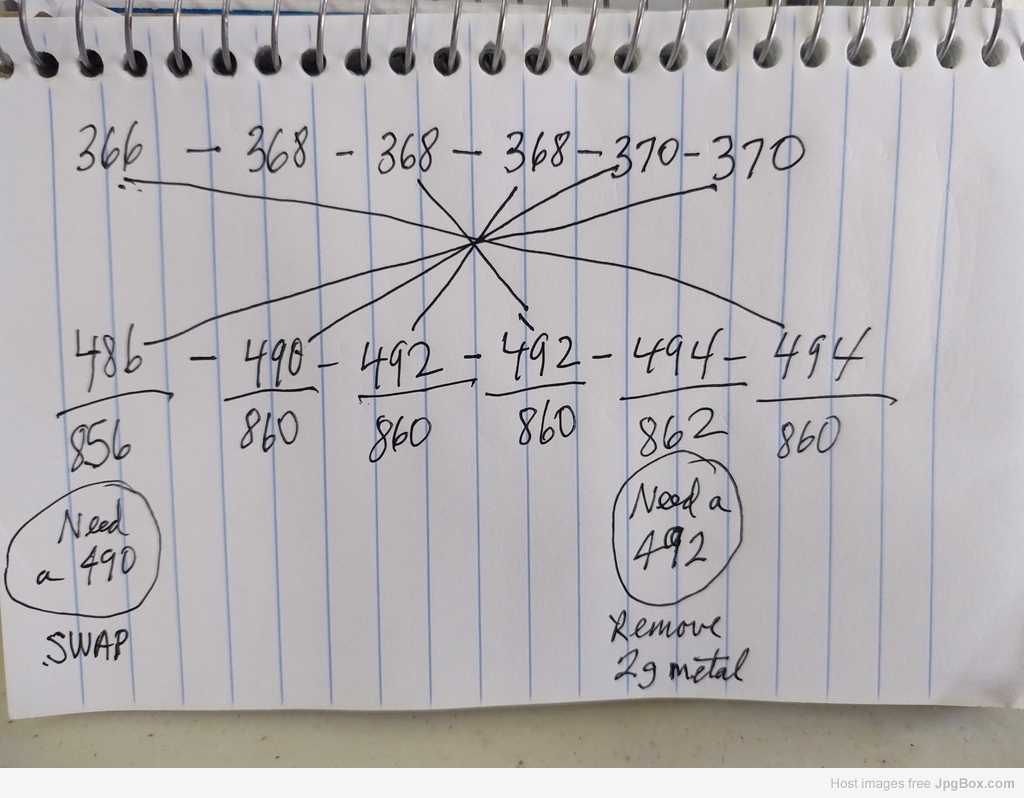 366 - 368 - 368 - 368 - 370 - 370
486 - 490 - 492 - 492 - 494 - 494
856 860 860 860 862 860
Need
a 490
SWAP
Need a
492
Remove
2g metal
Host images free JpgBox.com